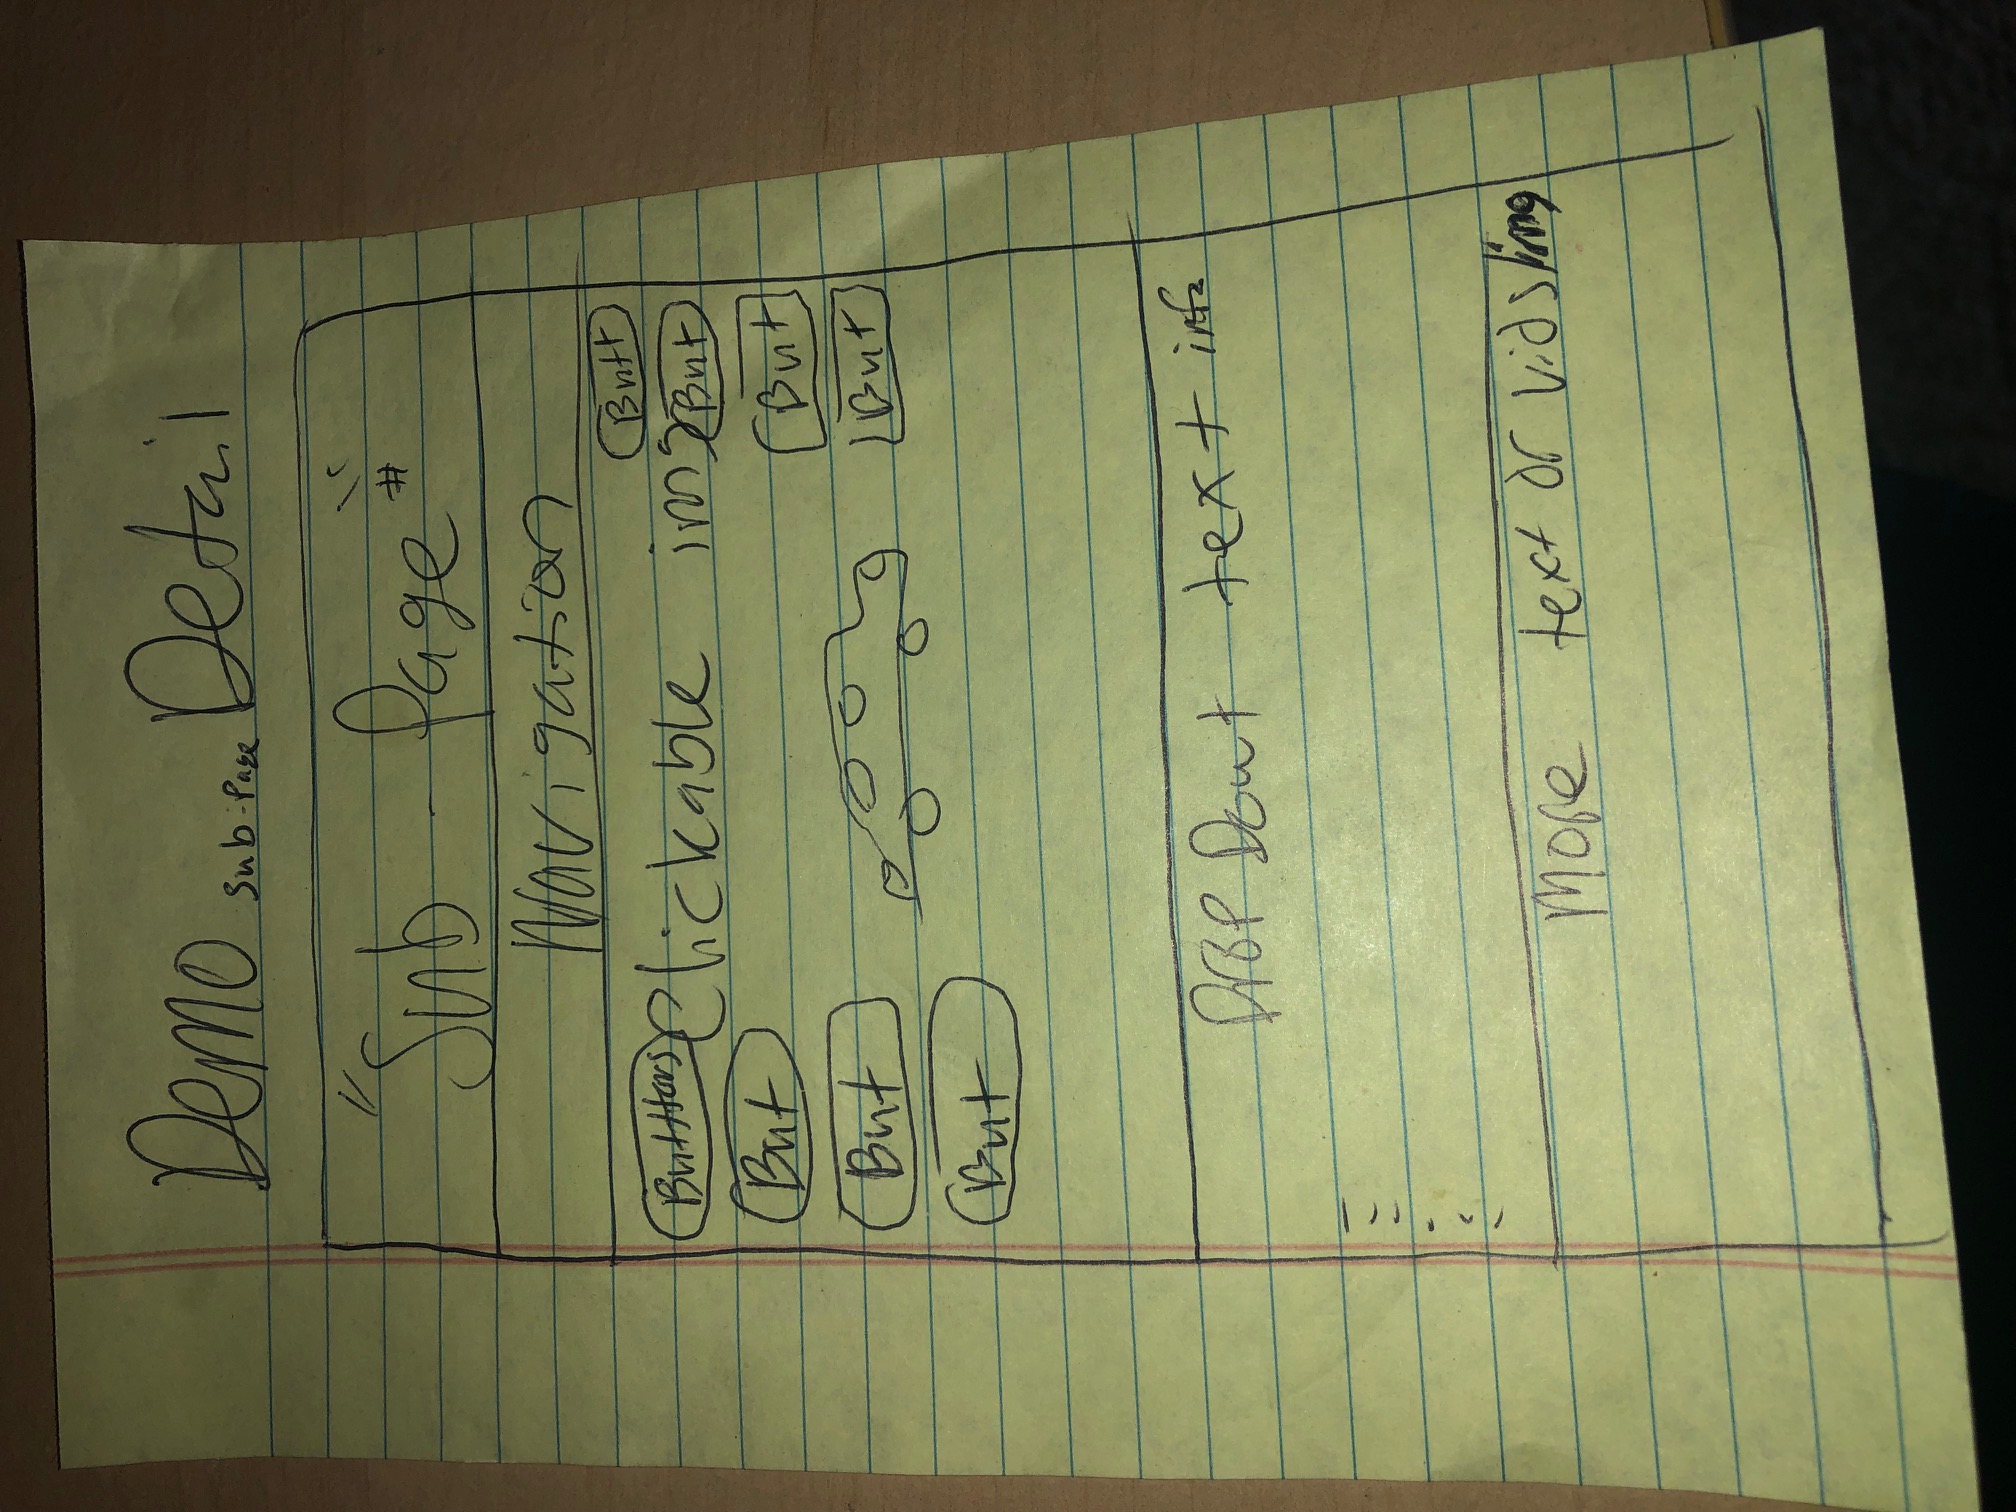 Demo sub-Page Detail
"Sub-Page #"
Navigation
Butttons Clickable img Butt
But But
But But
But But
Drop Dowt text info
More text or vids/img